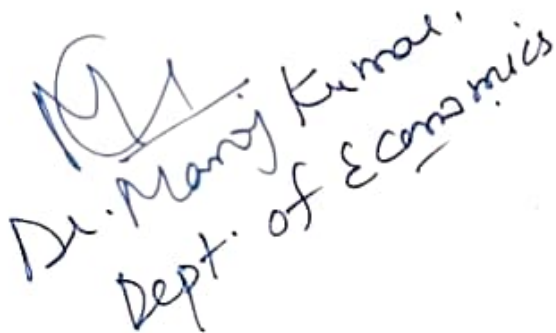 Dr. Manoj Kumar.
Dept. of Economics